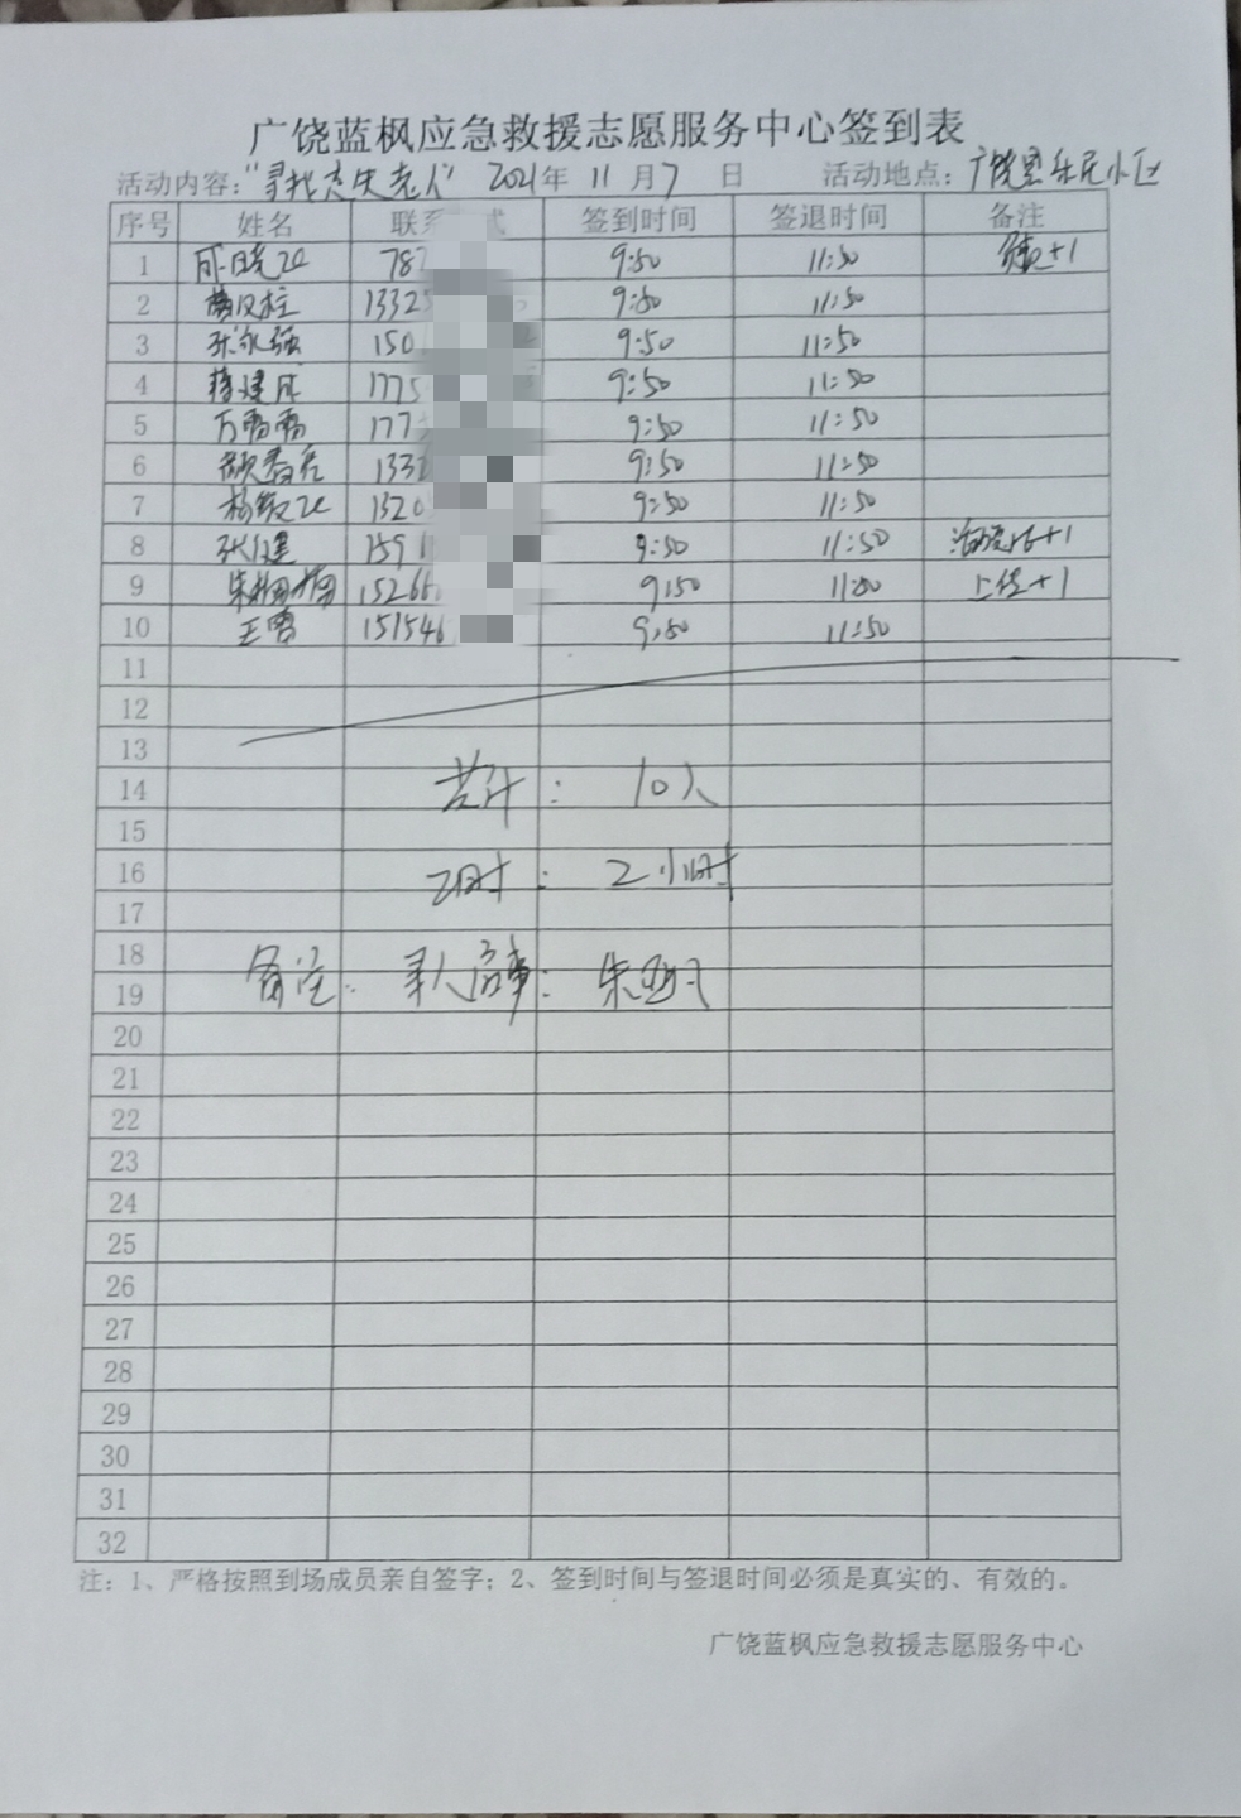 广饶蓝枫应急救援志愿服务中心签到表
活动内容：“寻找走失老人” 2021年 11 月 7 日 活动地点：广饶县乐民小区
序号 姓名 联系 式 签到时间 签退时间 备注
1 成晓红 787 9:50 11:50 +1
2 1332 9:50 11:50
3 张永强 150 9:50 11:50
4 蒋建成 1775 9:50 11:50
5 万雷雷 177 9:50 11:50
6 颜春亮 1332 9:50 11:50
7 杨敏红 1320 9:50 11:50
8 张健 159 9:50 11:50 +1
9 朱楠楠 15266 9:50 11:50 上传+1
10 王雪 151546 9:50 11:50
11
12
13
14 共计： 10人
15
16 工时： 2小时
17
18
备注： 寻人启事： 朱
19
20
21
22
23
24
25
26
27
28
29
30
31
32
注：1、严格按照到场成员亲自签字；2、签到时间与签退时间必须是真实的、有效的。
广饶蓝枫应急救援志愿服务中心